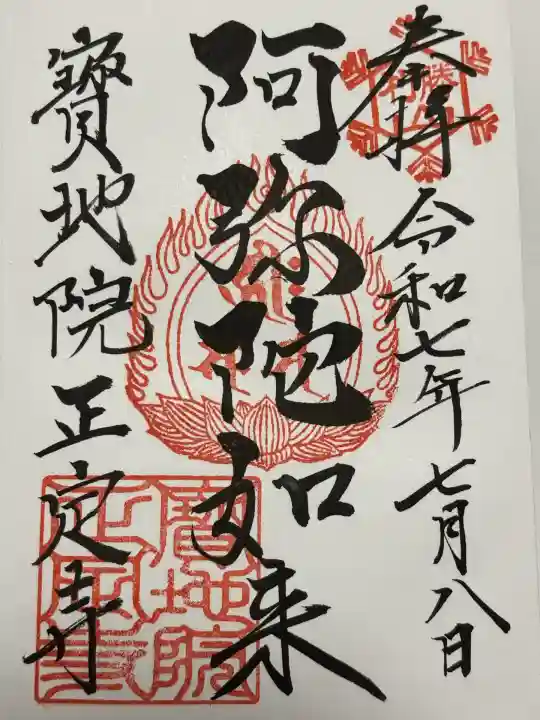 奉拝 令和七年七月八日
阿弥陀如来
寶地院 正定寺